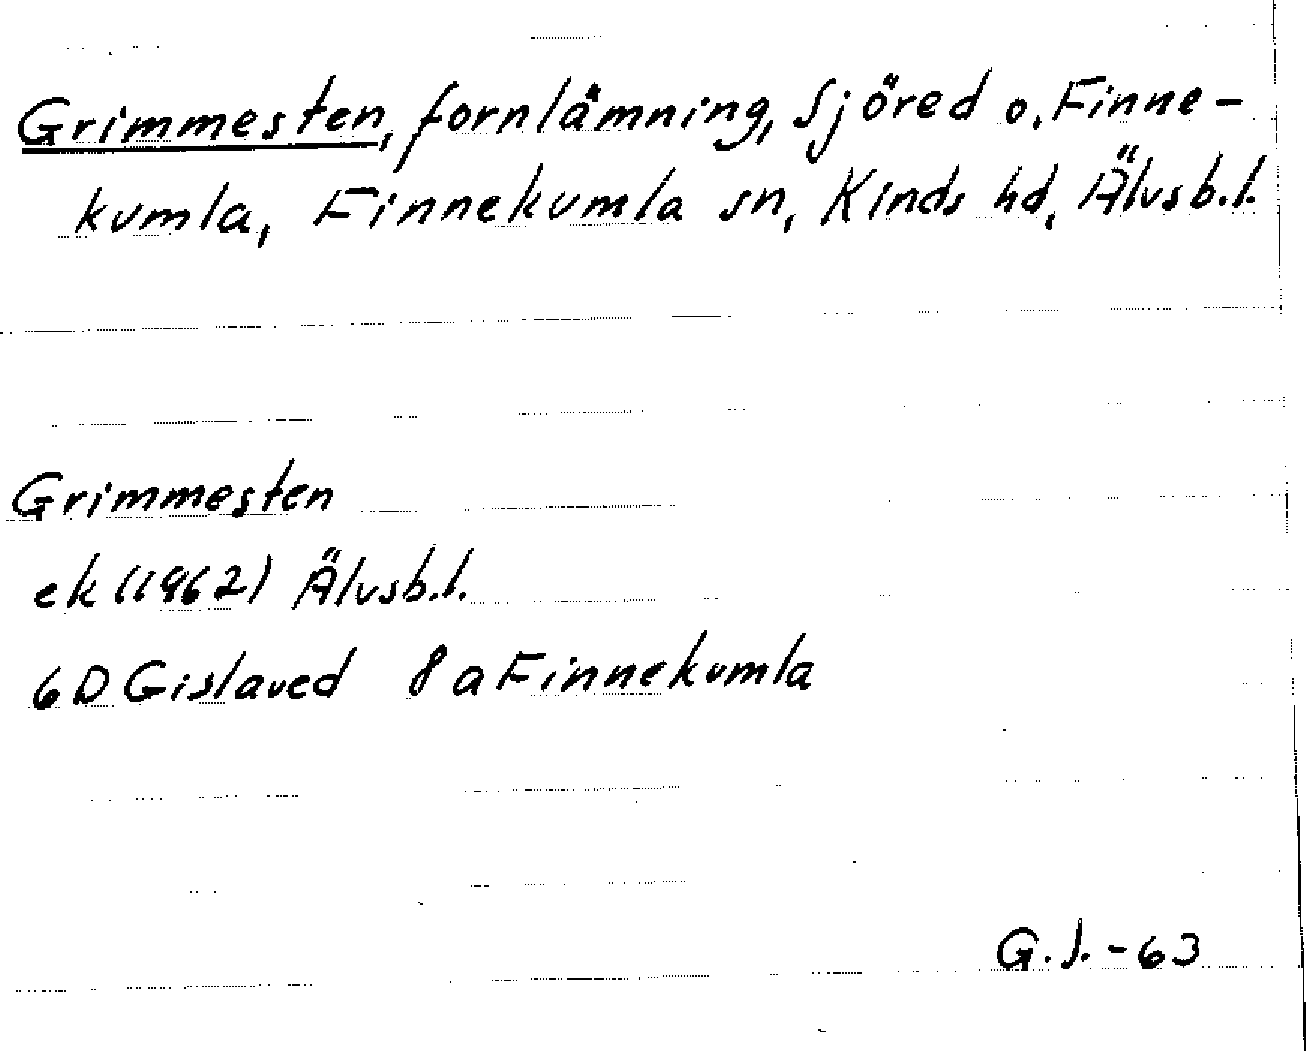 Grimmesten, fornlämning, Sjöred o. Finne-
kumla, Finnekumla sn, Kinds hd, Älvsb.l.
Grimmesten
ek (1962) Älvsb.l.
6D Gislaved 8a Finnekumla
G.J.-63